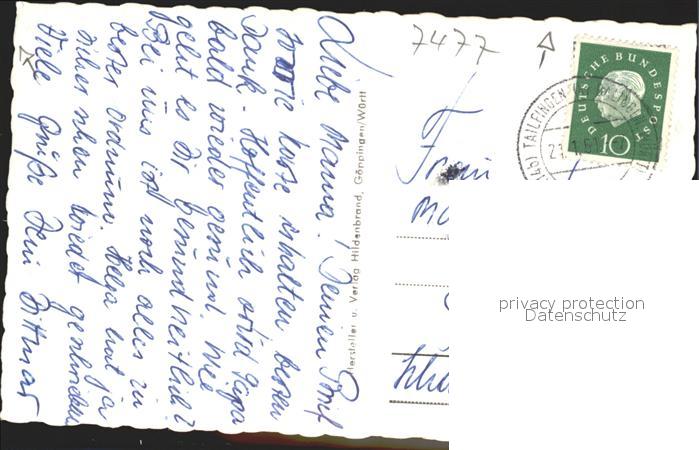 Liebe Mama! Deinen Brief
sowie Karte erhalten besten
Dank. Hoffentlich wird Papa
bald wieder gesund. Wie
geht es Dir gesundheitlich?
Bei uns ist noch alles in
bester Ordnung. Helga hat ja
sicher schon wieder geschrieben
Viele Grüße Dein Dittmar
Hersteller u. Verlag Hildenbrand, Göppingen/Württ
7477
Frau
DEUTSCHE BUNDESPOST
10
TAILFINGEN
privacy protection
Datenschutz